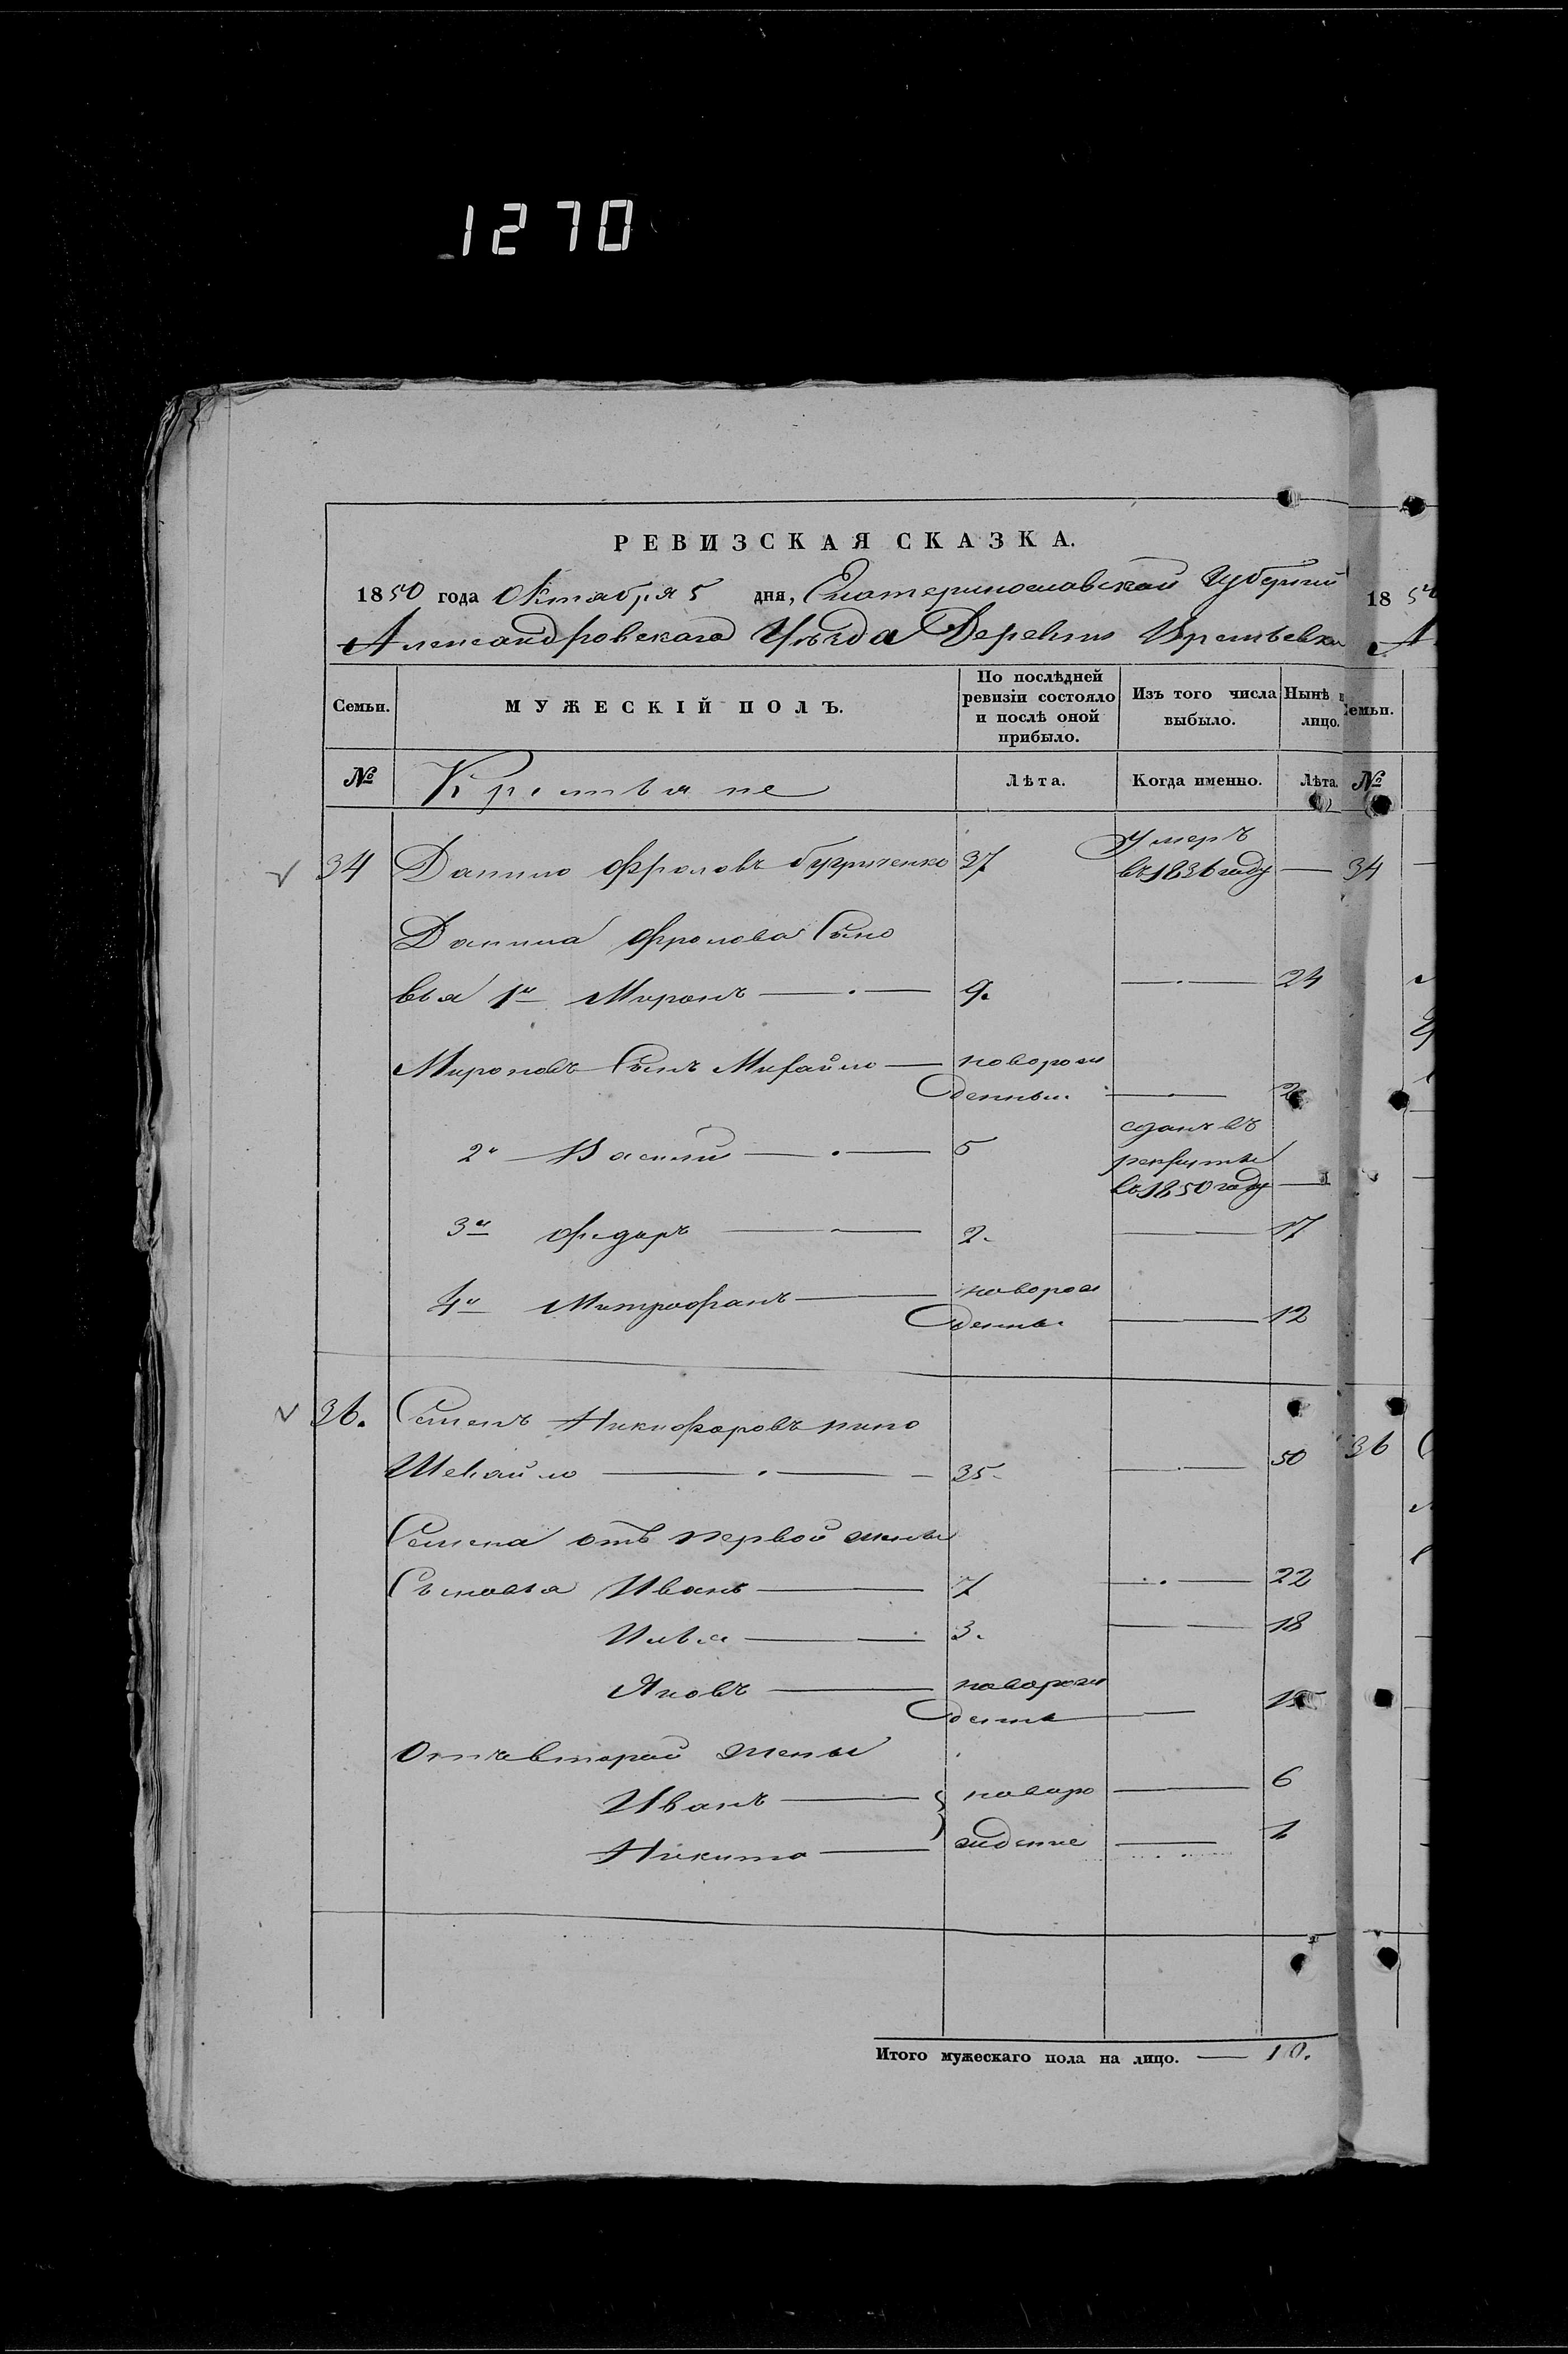 1270
РЕВИЗСКАЯ СКАЗКА.
1850 года Октября 5 дня, Екатеринославской Губернии
Александровскаго Уѣзда Деревни
Семьи. МУЖЕСКІЙ ПОЛЪ. По послѣдней ревизіи состояло и послѣ оной прибыло. Изъ того числа выбыло. Нынѣ лицо.
№ Крестьяне Лѣта. Когда именно. Лѣта.
34 Данило Фроловъ 37 умеръ въ 1836 году —
Данила Фролова Сыно
вья 1й Миронъ — 9. — 24
Мироновъ Сынъ Михайло — новорож
денный — 2
2й Василий — 5 сданъ въ
рекруты
въ 1850 году —
3й Федоръ — 2. — 17
4й Митрофанъ — новорож
денны — 12
36. Семенъ Никифоровъ
— 35 — 50
Семена отъ первой жены
Сыновья Иванъ — 7 — 22
Илья — 3. — 18
Яковъ — новорож
денны — 15
Отъ второй жены
Иванъ — новоро — 6
Никита — жденые — 1
Итого мужескаго пола на лицо. — 10.
18 50
А
Семьи.
№
34
36